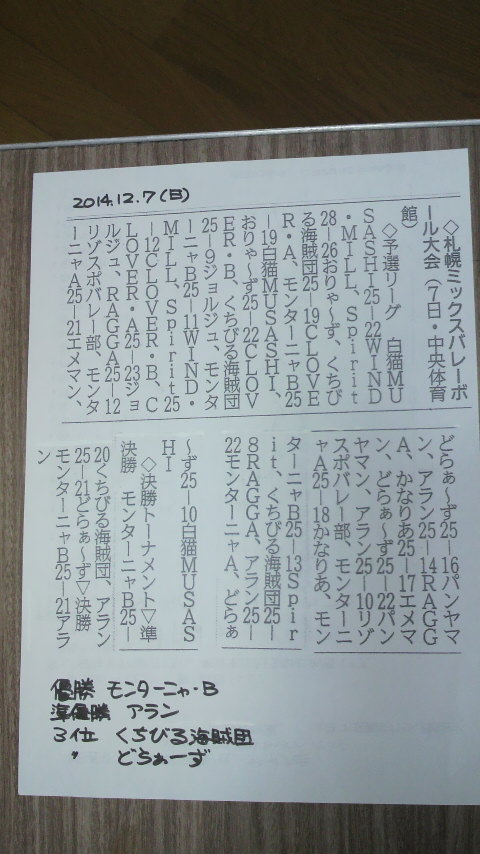 2014.12.7(日)
◇札幌ミックスバレーボ
ール大会(7日・中央体育
館)
◇予選リーグ 白猫MU
SASHI25―22WIND
・MILL、Spirit
28―26おりゃ~ず、くちび
る海賊団25―19CLOVE
R・A、モンターニャB25
―19白猫MUSASHI、
おりゃ~ず25―22CLOV
ER・B、くちびる海賊団
25―9ジョルジュ、モンタ
ーニャB25―11WIND・
MILL、Spirit25
―12CLOVER・B、C
LOVER・A25―23ジョ
ルジュ、RAGGA25―12
リゾスポバレー部、モンタ
ーニャA25―21エメマン、
どらぁ~ず25―16パンヤマ
ン、アラン25―14RAGG
A、かなりあ25―17エメマ
ン、どらぁ~ず25―22パン
ヤマン、アラン25―10リゾ
スポバレー部、モンターニ
ャA25―18かなりあ、モン
ターニャB25―13Spir
it、くちびる海賊団25―
8RAGGA、アラン25―
22モンターニャA、どらぁ
~ず25―10白猫MUSAS
HI
◇決勝トーナメント▽準
決勝 モンターニャB25―
20くちびる海賊団、アラン
25―21どらぁ~ず▽決勝
モンターニャB25―21アラ
ン
優勝 モンターニャ・B
準優勝 アラン
3位 くちびる海賊団
〃 どらぁーず